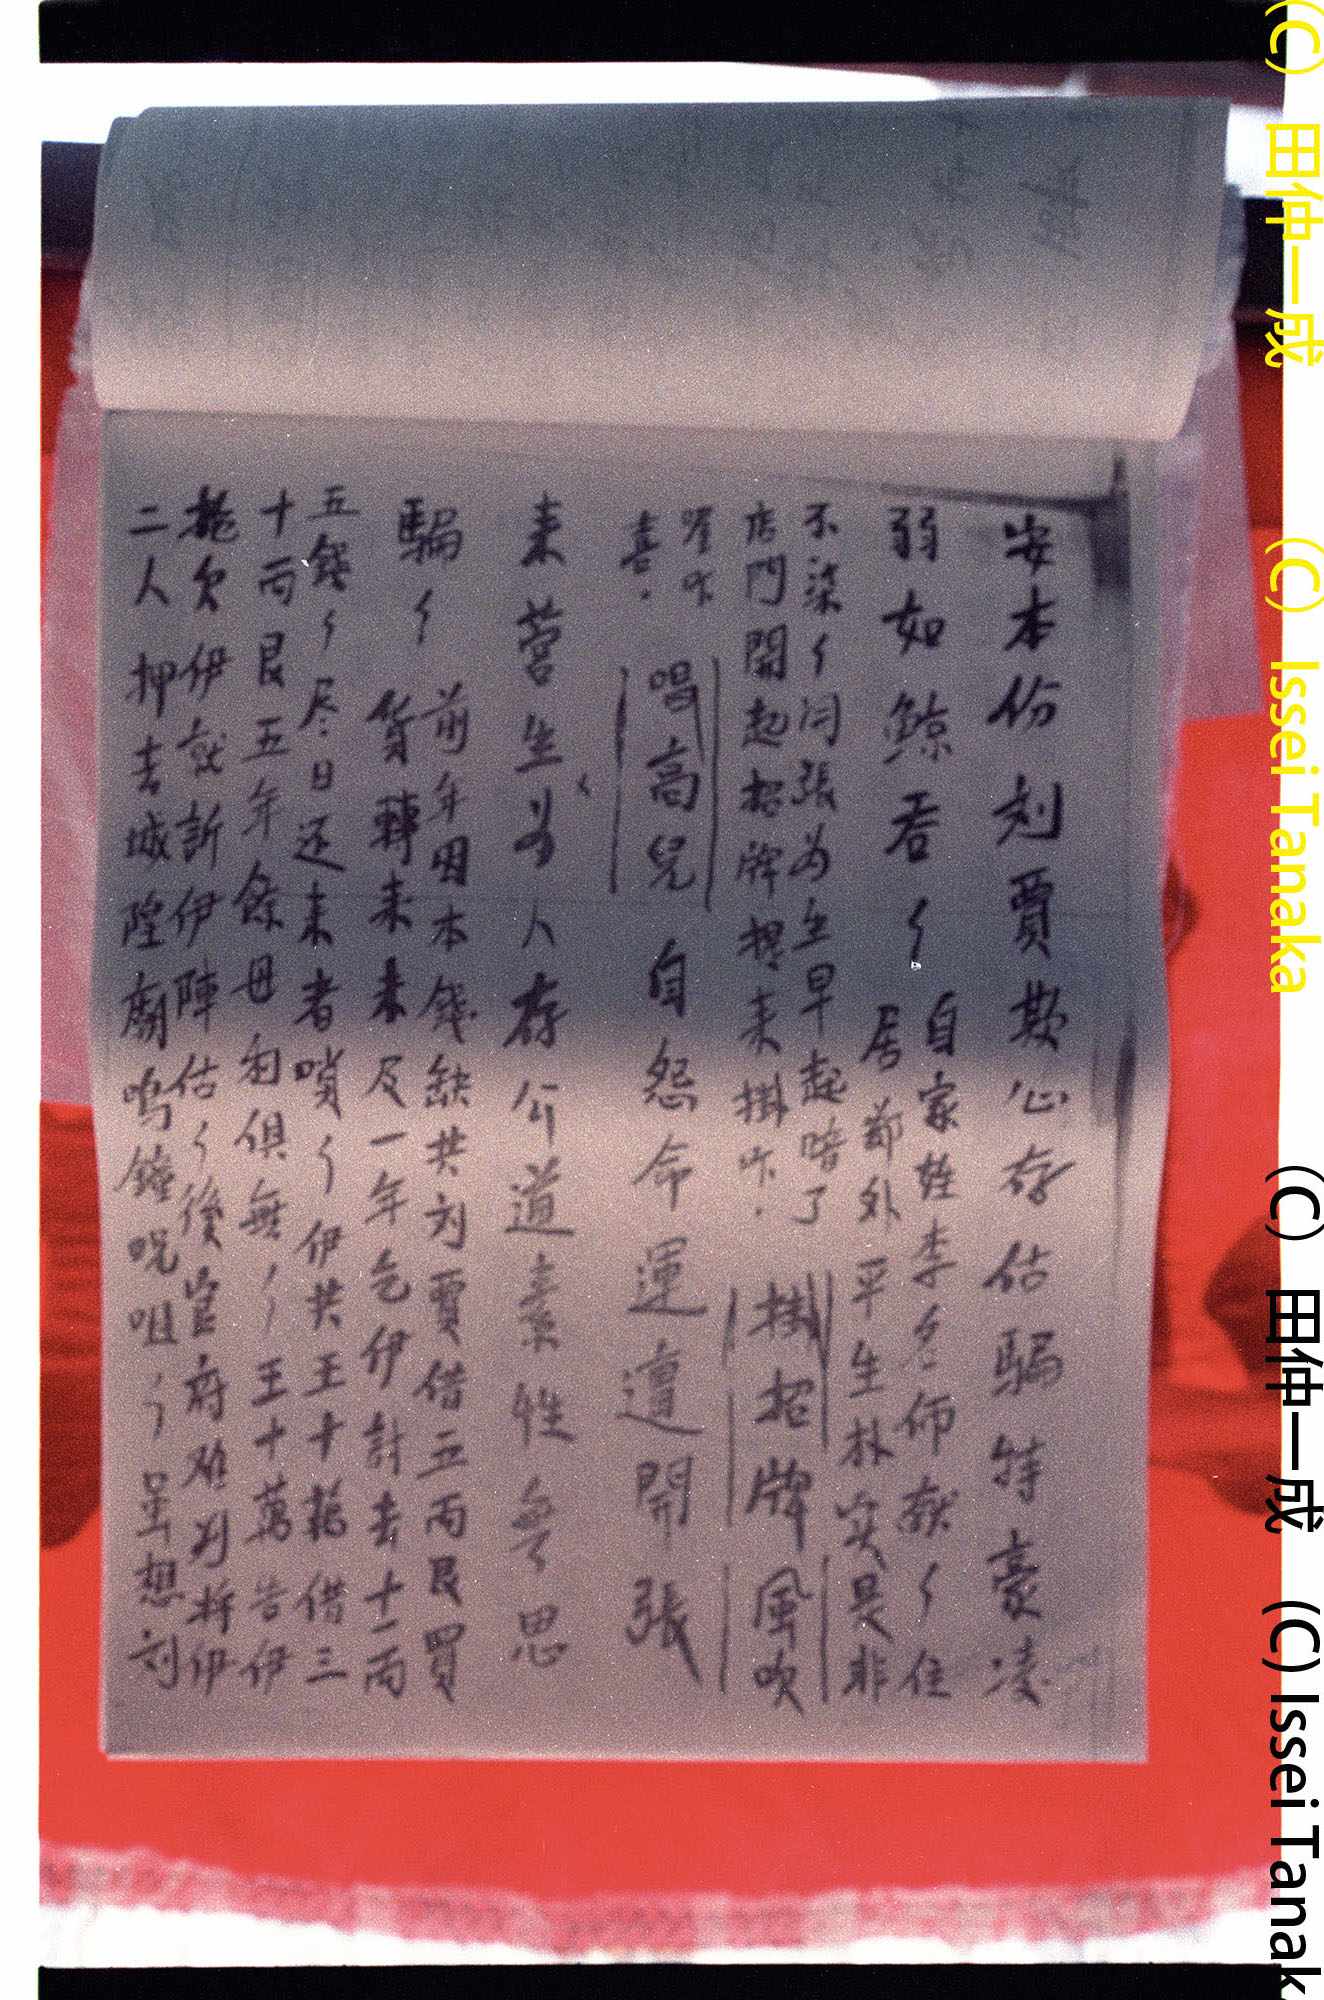 安本份刘賈欺心存估騙特豪凌
弱如鯨吞〻
自家姓李名師猷〻住
居郊外平生朴实是非
不染〻问張为生早起啃了
店門開起招牌提来掛咋.
掛招牌風吹
咋
喜.
唱高兒
自怨命運遭開張
来营生为人存公道素性無思
騙〻
前年因本錢缺共刘賈借五両艮買
貨轉来未及一年乞伊討去十二両
五錢〻尽日还来者哨〻伊共王十萬借三
十両艮五年餘母利俱無〻王十萬告伊
拖欠伊就訴伊陣估〻後官府难判将伊
二人押去城隍廟鳴鐘呪咀〻虽想刘
(C) 田仲一成 (C) Issei Tanaka (C) 田仲一成 (C) Issei Tanak